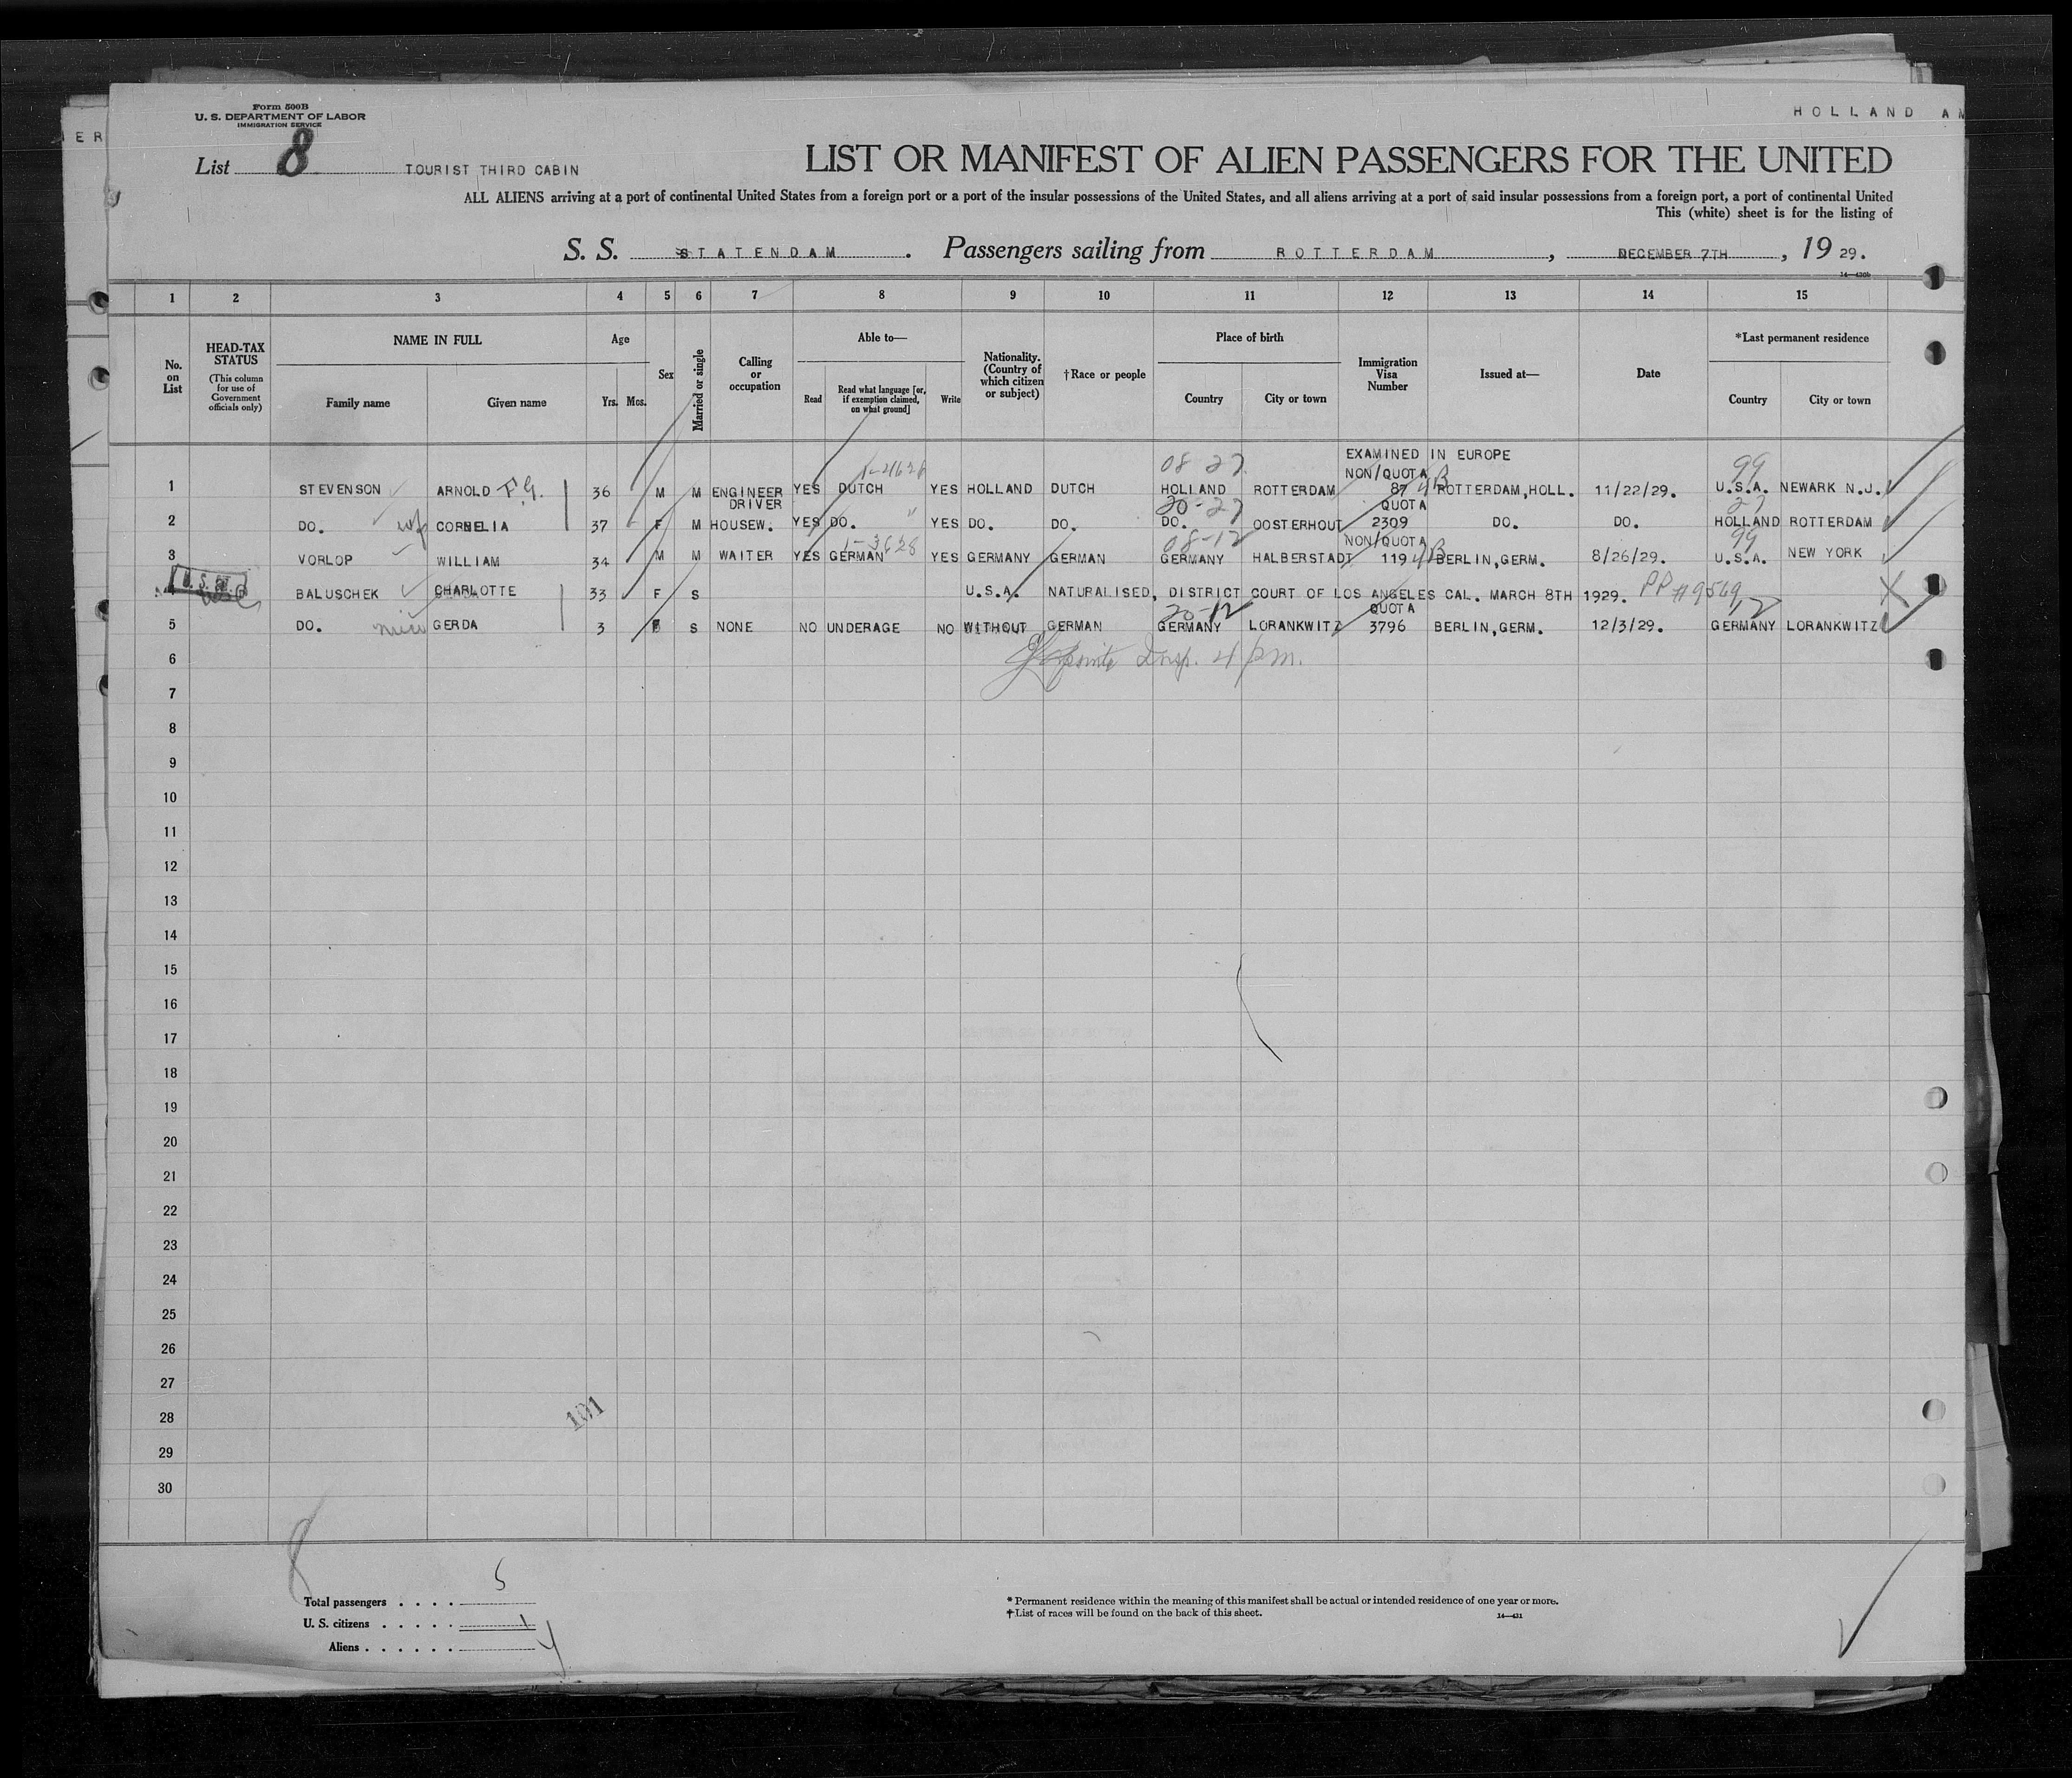 Form 500B
U. S. DEPARTMENT OF LABOR
IMMIGRATION SERVICE
HOLLAND AM
ER
List 8 TOURIST THIRD CABIN
LIST OR MANIFEST OF ALIEN PASSENGERS FOR THE UNITED
ALL ALIENS arriving at a port of continental United States from a foreign port or a port of the insular possessions of the United States, and all aliens arriving at a port of said insular possessions from a foreign port, a port of continental United
This (white) sheet is for the listing of
S. S. STATENDAM. Passengers sailing from ROTTERDAM, DECEMBER 7TH, 1929.
14—430b
1 2 3 4 5 6 7 8 9 10 11 12 13 14 15
No. on List
HEAD-TAX STATUS (This column for use of Government officials only)
NAME IN FULL Family name Given name
Age Yrs. Mos.
Sex
Married or single
Calling or occupation
Able to— Read Read what language [or, if exemption claimed, on what ground] Write
Nationality. (Country of which citizen or subject)
†Race or people
Place of birth Country City or town
Immigration Visa Number
Issued at—
Date
*Last permanent residence Country City or town
EXAMINED IN EUROPE
08-27 NON/QUOTA 99
1 STEVENSON ARNOLD F.G. 36 M M ENGINEER DRIVER YES DUTCH YES HOLLAND DUTCH HOLLAND ROTTERDAM 87 ROTTERDAM,HOLL. 11/22/29. U.S.A. NEWARK N.J.
20-27 QUOTA 27
2 DO. wf CORNELIA 37 F M HOUSEW. YES DO. " YES DO. DO. DO. OOSTERHOUT 2309 DO. DO. HOLLAND ROTTERDAM
08-12 NON/QUOTA 99
3 VORLOP WILLIAM 34 M M WAITER YES GERMAN YES GERMANY GERMAN GERMANY HALBERSTADT 119 BERLIN,GERM. 8/26/29. U.S.A. NEW YORK
4 BALUSCHEK CHARLOTTE 33 F S U.S.A. NATURALISED, DISTRICT COURT OF LOS ANGELES CAL. MARCH 8TH 1929. PP #9569 X
20-12 QUOTA 12
5 DO. niece GERDA 3 F S NONE NO UNDERAGE NO WITHOUT GERMAN GERMANY LORANKWITZ 3796 BERLIN,GERM. 12/3/29. GERMANY LORANKWITZ
6 Insp. 4 pm.
7
8
9
10
11
12
13
14
15
16
17
18
19
20
21
22
23
24
25
26
27
28
29
30
101
8
Total passengers . . . . 5
U. S. citizens . . . . . 1
Aliens . . . . . . 4
* Permanent residence within the meaning of this manifest shall be actual or intended residence of one year or more.
† List of races will be found on the back of this sheet.
14—431